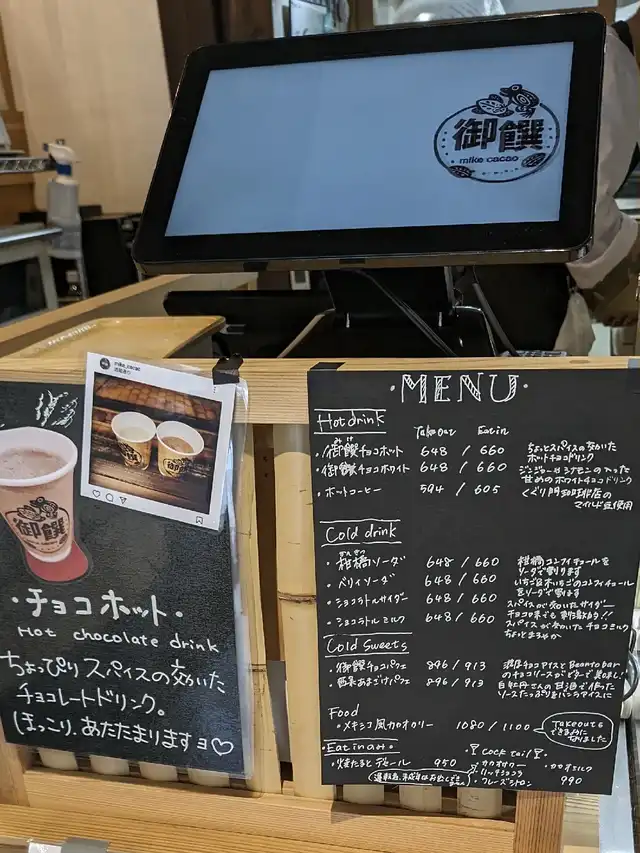 御饌
mike cacao
御饌
・チョコホット・
Hot chocolate drink
ちょっぴりスパイスの効いた
チョコレートドリンク。
ほっこり、あたたまりますヨ♡
・MENU・
Hot drink
Take out Eat in
・御饌チョコホット 648 / 660 ちょっとスパイスの効いた
ホットチョコドリンク
・御饌チョコホワイト 648 / 660 ジンジャーとシナモンの入った
甘めのホワイトチョコドリンク
・ホートコーヒー 594 / 605
マイルド豆使用
Cold drink
かんきつ
・柑橘ソーダ 648 / 660 柑橘コンフィチュールを
ソーダで割ります
・ベリィソーダ 648 / 660 いちご&木いちごのコンフィチュール
をソーダで割ります
・ショコラトルサイダー 648 / 660 スパイスが効いたサイダー
・ショコラトルミルク 648 / 660 スパイスが効いたチョコミルク
Cold Sweets
・御饌チョコパフェ 896 / 913 濃厚チョコアイスとBean to bar
のチョコソースがビターで美味しい!
あまざけパフェ 896 / 913
Food
・メキシコ風カカオカリー 1080 / 1100
Takeoutも
できるように
なりました
・Eat in only・
950
・Cocktail
・カカオサワー
・リッチショコラ
・フレーズシトロン
・カカオミルク
990